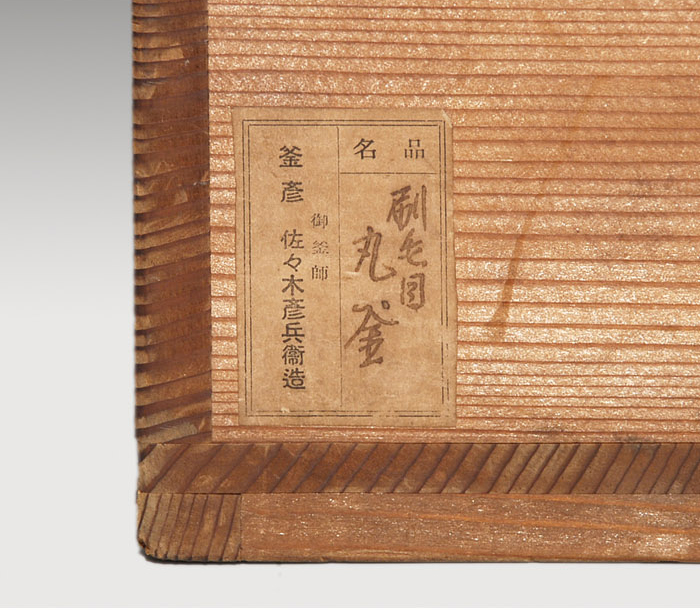 名品
刷毛目
丸釜
御釜師
釜彦 佐々木彦兵衞造